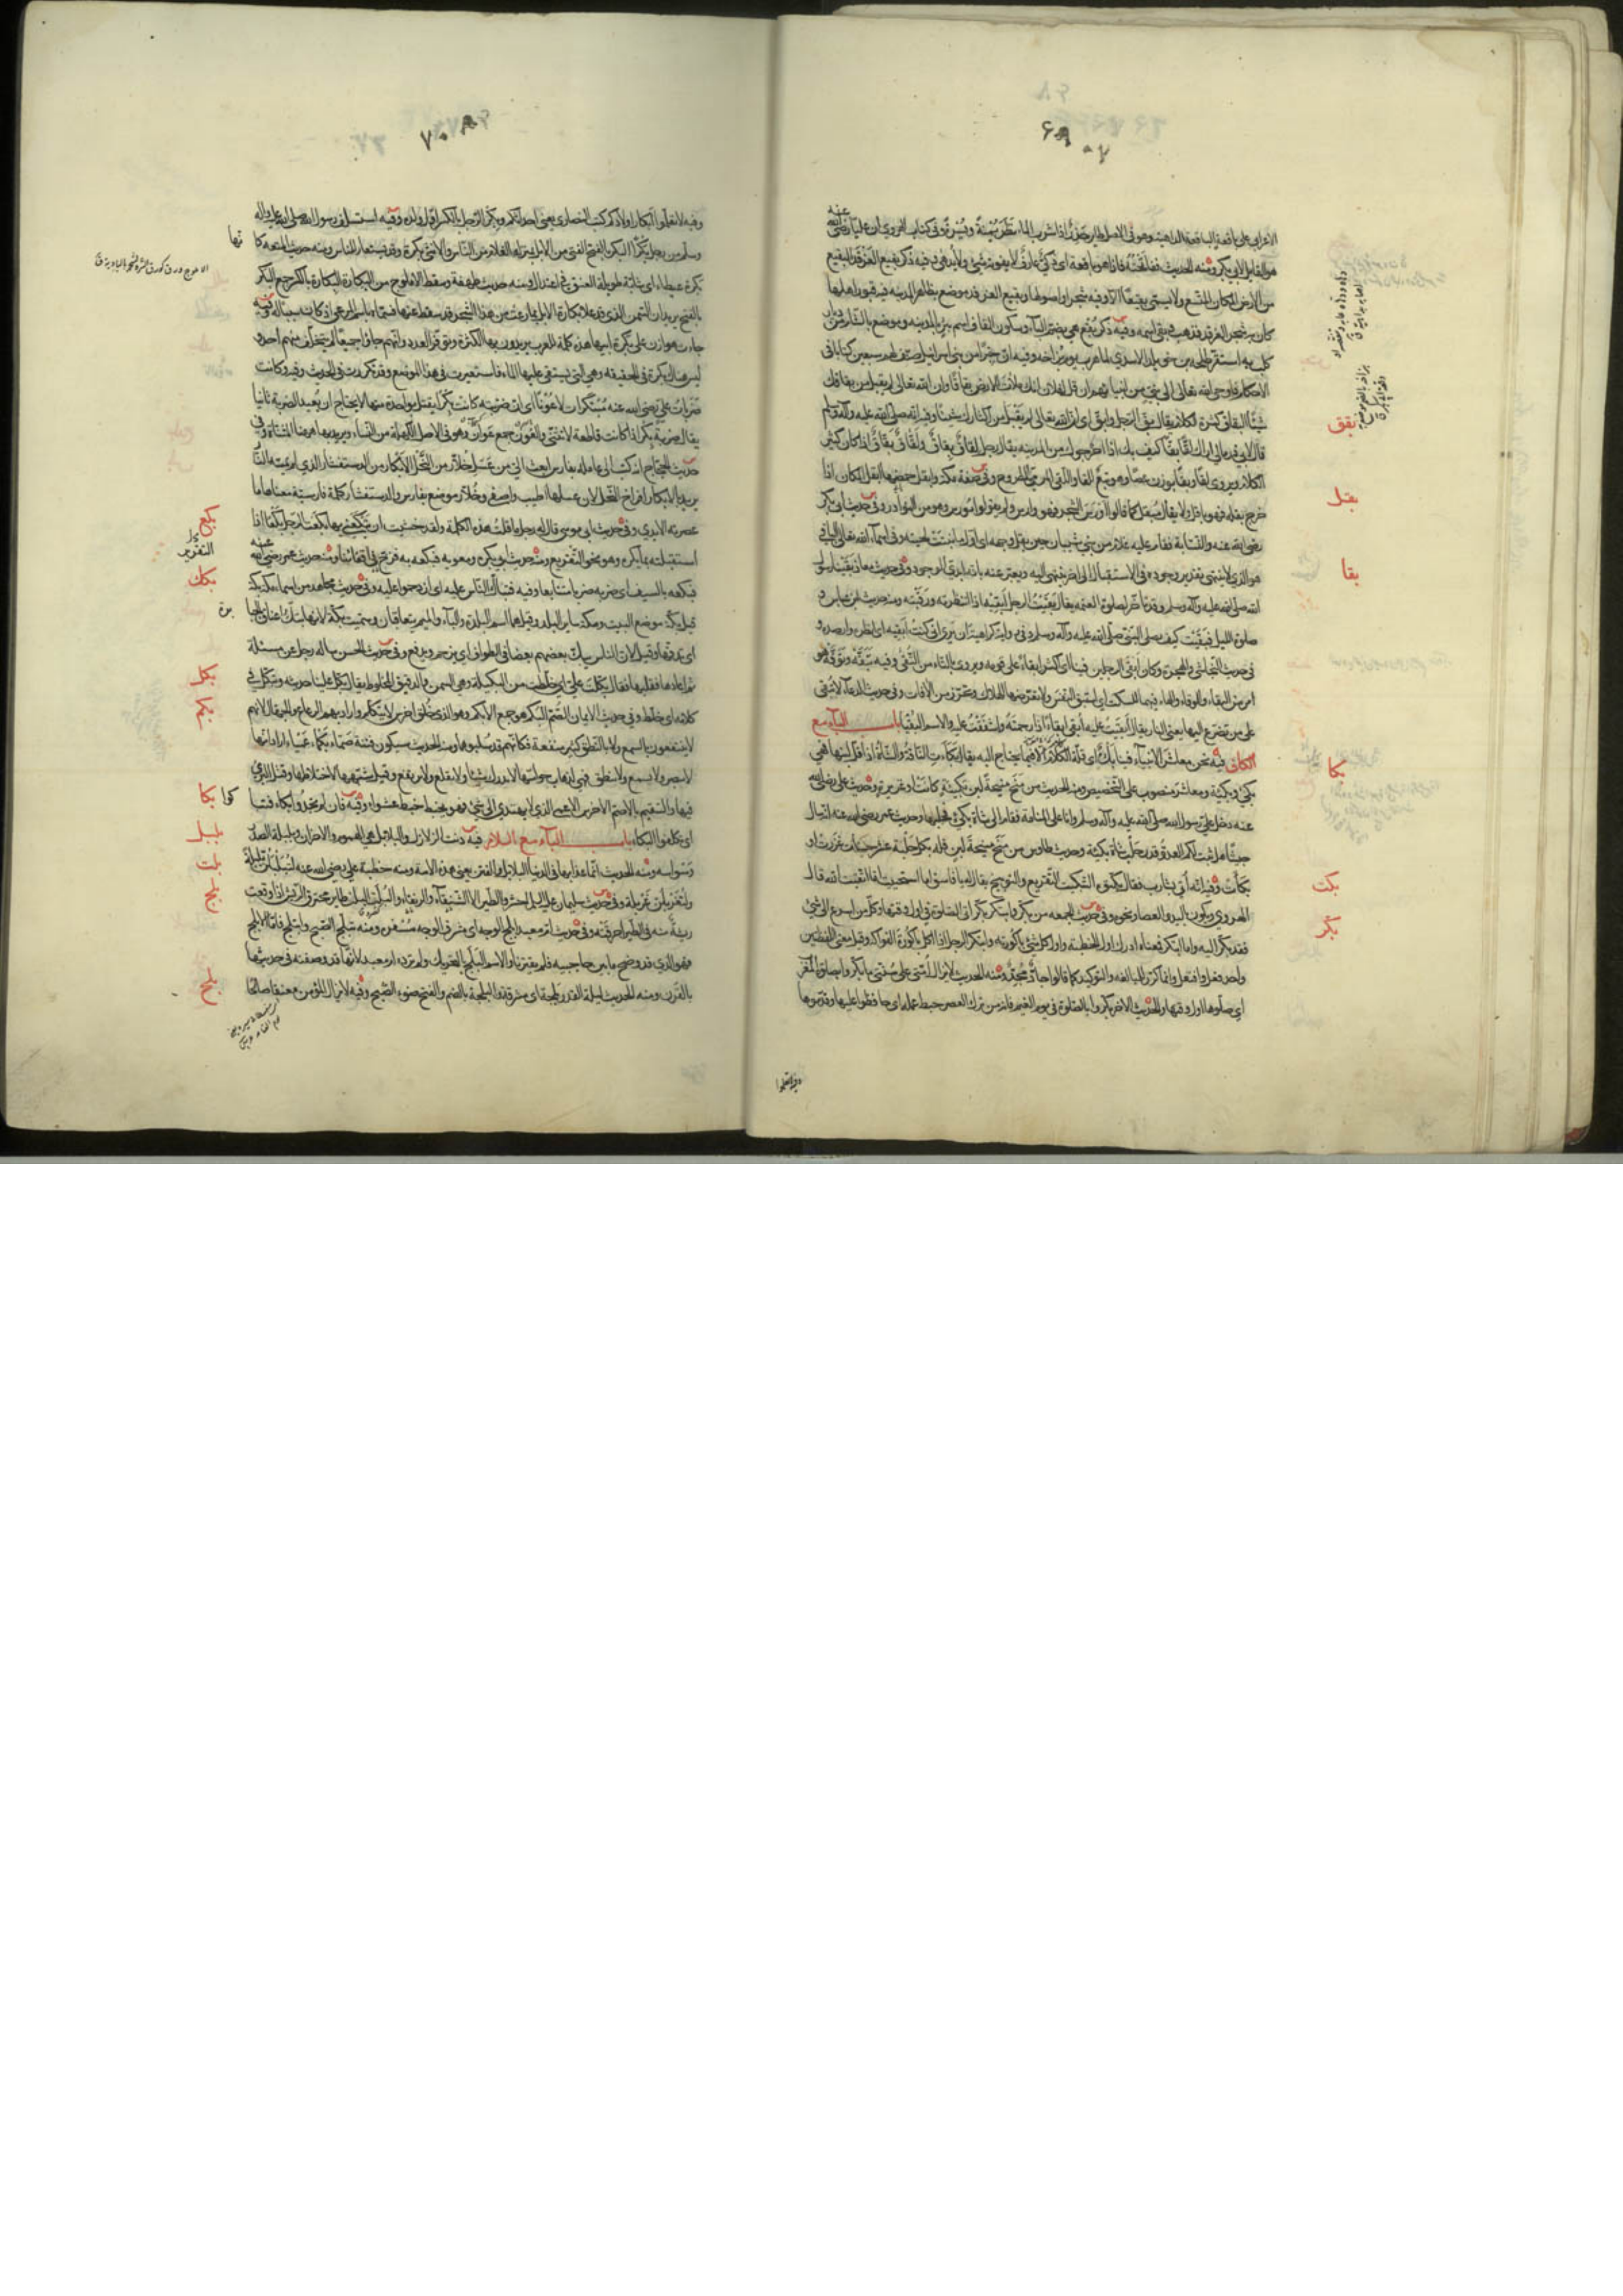 الاعرابى على باقعة الباقعة الداهية وهو فى الاصل طاير حذر اذا شرب الماء نظر يمنة ويسرة وفى كتاب الهروى ان عليا رضى الله عنه
هو القايل لابى بكر ومنه الحديث ففاتحته فاذا هو باقعة اى ذكى عارف لا يفوته شئ ولا يدهى وفيه ذكر بقيع الغرقد البقيع
من الارض المكان المتسع ولا يسمى بقيعا الا وفيه شجر او اصولها وبقيع الغرقد موضع بظاهر المدينة فيه قبور اهلها
كان به شجر الغرقد فذهب وبقى اسمه وفيه ذكر بقع هى بضم الباء وسكون القاف اسم بئر بالمدينة وموضع بالشام من ديار
كلب به استقر طلحة بن خويلد الاسدى لما هرب يوم بزاخة وفيه ان حبرا من بنى اسرائيل صنف لهم سبعين كتابا فى
الاحكام فاوحى الله تعالى الى نبى من انبيائهم ان قل لفلان انك ملأت الارض بقاقا وان الله تعالى لم يقبل من بقاقك
شيئا البقاق كثرة الكلام يقال بق الرجل وابق اى ان الله تعالى لم يقبل من اكثارك شيئا وفيه انه صلى الله عليه وآله وسلم
قال لابى ذر مالى اراك لقا بقا كيف بك اذا اخرجوك من المدينة يقال رجل لقاق بقاق ولقاق بقاق اذا كان كثير
الكلام ويروى لقا بقا بوزن عصا وهو تبع للقا واللقى المرمى المطروح وفى صفة مكة وابقل حمضها ابقل المكان اذا
خرج بقله فهو باقل ولا يقال مبقل كما قالوا اورس الشجر فهو وارس ولم يقولوا مورس وهو من النوادر وفى حديث ابى بكر
رضى الله عنه والنسابة فقام اليه غلام من بنى شيبان حين بقل وجهه اى اول ما نبتت لحيته وفى اسماء الله تعالى الباقى
هو الذى لا ينتهى تقدير وجوده فى الاستقبال الى آخر ينتهى اليه ويعبر عنه بانه ابدى الوجود وفى حديث معاذ بقينا رسول
الله صلى الله عليه وآله وسلم وقد تأخر لصلوة العتمة يقال بقيت الرجل ابقيه اذا انتظرته ورقبته ومنه حديث ابن عباس و
صلوة الليل فبقيت كيف يصلى النبى صلى الله عليه وآله وسلم وفى رواية كراهية ان يرى انى كنت ابقيه اى انظره وارصده و
فى حديث النجاشى والهجرة وكان ابقى الرجلين فينا اى اكثر ابقاء على قومه ويروى بالتاء من التقى وفيه تبقه وتوقه هو
امر من البقاء والوقاء والهاء فيهما للسكت اى استبق النفس ولا تعرضها للهلاك وتحرز من الآفات وفى حديث الدعاء لا تبقى
على من تضرع اليها يعنى النار يقال ابقيت عليه ابقى ابقاء اذا رحمته واشفقت عليه والاسم البقيا باب الباء مع
الكاف فيه نحن معاشر الانبياء فينا بك اى قلة الكلام الا فيما يحتاج اليه يقال بكأت الناقة والشاة اذا قل لبنها فهى
بكئ وبكيئة ومعاشر منصوب على التخصيص ومنه الحديث من منح منيحة لبن بكيئة كانت او غزيرة وحديث على رضى الله
عنه دخل على رسول الله صلى الله عليه وآله وسلم وانا على المنامة فقام الى شاة بكئ فحلبها وحديث عمر رضى الله عنه انه سأل
جيشا هل ثبت لكم العدو قدر حلب شاة بكيئة وحديث طاوس من منح منيحة لبن فله بكل حلبة عشر حسنات غزرت او
بكأت وفيه انه اتى بشارب فقال بكتوه التبكيت التقريع والتوبيخ يقال له يا فاسق اما استحييت اما اتقيت الله قال
الهروى ويكون باليد والعصا ونحوه وفى حديث الجمعة من بكر وابتكر بكر اتى الصلوة فى اول وقتها وكل من اسرع الى شئ
فقد بكر اليه واما ابتكر فمعناه ادرك اول الخطبة واول كل شئ باكورته وابتكر الرجل اذا اكل باكورة الفواكه وقيل معنى اللفظين
واحد فعل وافتعل وانما كرر للمبالغة والتوكيد كما قالوا جاد مجد ومنه الحديث لا تزال امتى على سنتى ما بكروا بصلوة المغرب
اى صلوها اول وقتها والحديث الآخر بكروا بالصلوة فى يوم الغيم فانه من ترك العصر حبط عمله اى حافظوا عليها وقدموها
بقق
بقل
بقا
بكا
بكت
بكر
وفيه لا تعلموا ابكار اولادكم كتب النصارى يعنى احداثكم وبكر الرجل بالكسر اول ولده وفيه استسلف رسول الله صلى الله عليه وآله
وسلم من رجل بكرا البكر بالفتح الفتى من الابل بمنزلة الغلام من الناس والانثى بكرة وقد يستعار للناس ومنه حديث المتعة كانها
بكرة عيطاء اى شابة طويلة العنق فى اعتدال ومنه حديث طهفة وسقط الاملوج من البكارة البكارة بالكسر جمع البكر
بالفتح يريد ان السمن الذى قد علا بكارة الابل بما رعت من هذا الشجر قد سقط عنها فسماه باسم المرعى اذ كان سببا له وفيه
جاءت هوازن على بكرة ابيها هذه كلمة للعرب يريدون بها الكثرة وتوفر العدد وانهم جاؤا جميعا لم يتخلف منهم احد و
ليس هناك بكرة فى الحقيقة وهى التى يستقى عليها الماء فاستعيرت فى هذا الموضع وقد تكررت فى الحديث وفيه كانت
ضربات على رضى الله عنه مبتكرات لا عونا اى ان ضربته كانت بكرا يقتل بواحدة منها لا يحتاج ان يعيد الضربة ثانيا
يقال ضربة بكر اذا كانت قاطعة لا تثنى والعون جمع عوان وهو فى الاصل الكهلة من النساء ويريد بها ههنا المثناة وفى
حديث الحجاج انه كتب الى عامله بفارس ابعث الى من عسل خلار من النحل الابكار من الدستفشار الذى لم تمسه النار
يريد بالابكار افراخ النحل لان عسلها اطيب واصفى وخلار موضع بفارس والدستفشار كلمة فارسية معناها ما
عصرته الايدى وفى حديث ابى موسى قال له رجل ما قلت هذه الكلمة ولقد خشيت ان تبكعنى بها بكعت الرجل بكعا اذا
استقبلته بما يكره وهو نحو التقريع ومنه حديث ابى بكرة ومعوية فبكعه به فزخ فى اقفائنا ومنه حديث عمر رضى الله عنه
فبكعه بالسيف اى ضربه ضربا متتابعا وفيه فتباك الناس عليه اى ازدحموا عليه وفى حديث مجاهد من اسماء مكة بكة
قيل بكة موضع البيت ومكة ساير البلد وقيل هما اسم البلدة والباء والميم يتعاقبان وسميت بكة لانها تبك اعناق الجبابرة
اى تدقها وقيل لان الناس يبك بعضهم بعضا فى الطواف اى يزحم ويدفع وفى حديث الحسن سأله رجل عن مسئلة
ثم اعادها فقلبها فقال بكلت على اى خلطت من البكيلة وهى السمن والدقيق المخلوط يقال بكل علينا حديثه وتبكل فى
كلامه اى خلط وفى حديث الايمان الصم البكم هو جمع الابكم وهو الذى خلق اخرس لا يتكلم واراد بهم الرعاع والجهال لانهم
لا ينتفعون بالسمع ولا بالنطق كثير منفعة فكانهم قد سلبوهما ومنه الحديث سيكون فتنة صماء بكماء عمياء اراد انها
لا تبصر ولا تسمع ولا تنطق فهى لذهاب حواسها لا تدرك شيئا ولا تقلع ولا ترتفع وقيل شبهها لاختلاطها وقتل البرئ
فيها والسقيم بالاصم الاخرس الاعمى الذى لا يهتدى الى شئ فهو يخبط خبط عشواء وفيه فان لم تجدوا بكاء فتباكوا
اى تكلفوا البكاء باب الباء مع اللام فيه دنت الزلازل والبلابل هى الهموم والاحزان وبلبلة الصدر
وسواسه ومنه الحديث انما عذابها فى الدنيا البلابل والفتن يعنى هذه الامة ومنه خطبة على رضى الله عنه لتبلبلن بلبلة
ولتغربلن غربلة وفى حديث سليمان عليه السلم احشروا الطير الا الشنقاء والرنقاء والبلت البلت طاير محترق الريش اذا وقعت
ريشة منه فى الطير احرقته وفى حديث ام معبد ابلج الوجه اى مشرق الوجه مسفره ومنه تبلج الصبح وابتلج فاما الابلج
فهو الذى قد وضح ما بين حاجبيه فلم يقترنا والاسم البلج بالتحريك ولم ترده ام معبد لانها قد وصفته فى حديثها
بالقرن ومنه الحديث ليلة القدر بلجة اى مشرقة والبلجة بالضم والفتح ضوء الصبح وفيه لا يزال المؤمن معنقا صالحا
بكع
بكك
بكل
بكم
بكا
بلبل
بلت
بلج
بلح